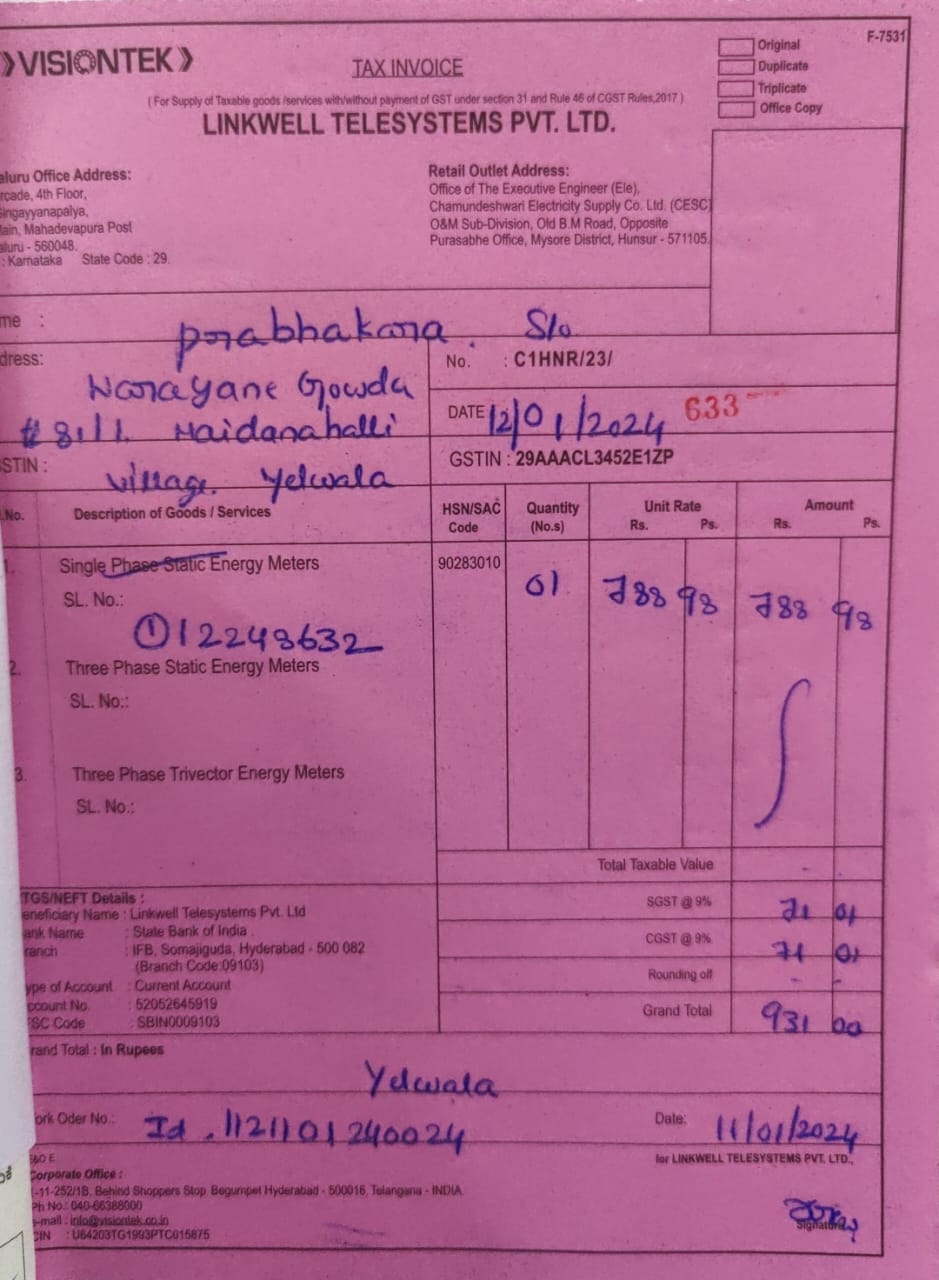 VISIONTEK
F-7531
TAX INVOICE
Original
Duplicate
Triplicate
Office Copy
( For Supply of Taxable goods /services with/without payment of GST under section 31 and Rule 46 of CGST Rules,2017 )
LINKWELL TELESYSTEMS PVT. LTD.
aluru Office Address:
rcade, 4th Floor,
ingayyanapalya,
ain, Mahadevapura Post
aluru - 560048.
: Karnataka State Code : 29.
Retail Outlet Address:
Office of The Executive Engineer (Ele),
Chamundeshwari Electricity Supply Co. Ltd. (CESC)
O&M Sub-Division, Old B.M Road, Opposite
Purasabhe Office, Mysore District, Hunsur - 571105.
me : Prabhakara. S/o
dress: Narayane Gowda
#81/1. Maidanahalli
STIN :
village. Yelwala
No. : C1HNR/23/
633
DATE 12/01/2024
GSTIN : 29AAACL3452E1ZP
.No. Description of Goods / Services HSN/SAC Code Quantity (No.s) Unit Rate Rs. Ps. Amount Rs. Ps.
1. Single Phase Static Energy Meters 90283010 01 788 98 788 98
SL. No.:
① 12248632
2. Three Phase Static Energy Meters
SL. No.:
3. Three Phase Trivector Energy Meters
SL. No.:
Total Taxable Value - -
SGST @ 9% 71 01
CGST @ 9% 71 01
Rounding off - -
Grand Total 931 00
TGS/NEFT Details :
eneficiary Name : Linkwell Telesystems Pvt. Ltd
ank Name : State Bank of India
ranch : IFB, Somajiguda, Hyderabad - 500 082
(Branch Code:09103)
ype of Account : Current Account
ccount No. : 52052645919
FSC Code : SBIN0009103
rand Total : In Rupees
Yelwala
ork Oder No.: Id. 1121101240024
Date: 11/01/2024
for LINKWELL TELESYSTEMS PVT. LTD.,
&O E
Corporate Office :
-11-252/1B, Behind Shoppers Stop, Begumpet Hyderabad - 500016, Telangana - INDIA
Ph No.: 040-66388000
-mail : info@visiontek.co.in
CIN : U64203TG1993PTC015875
Signature